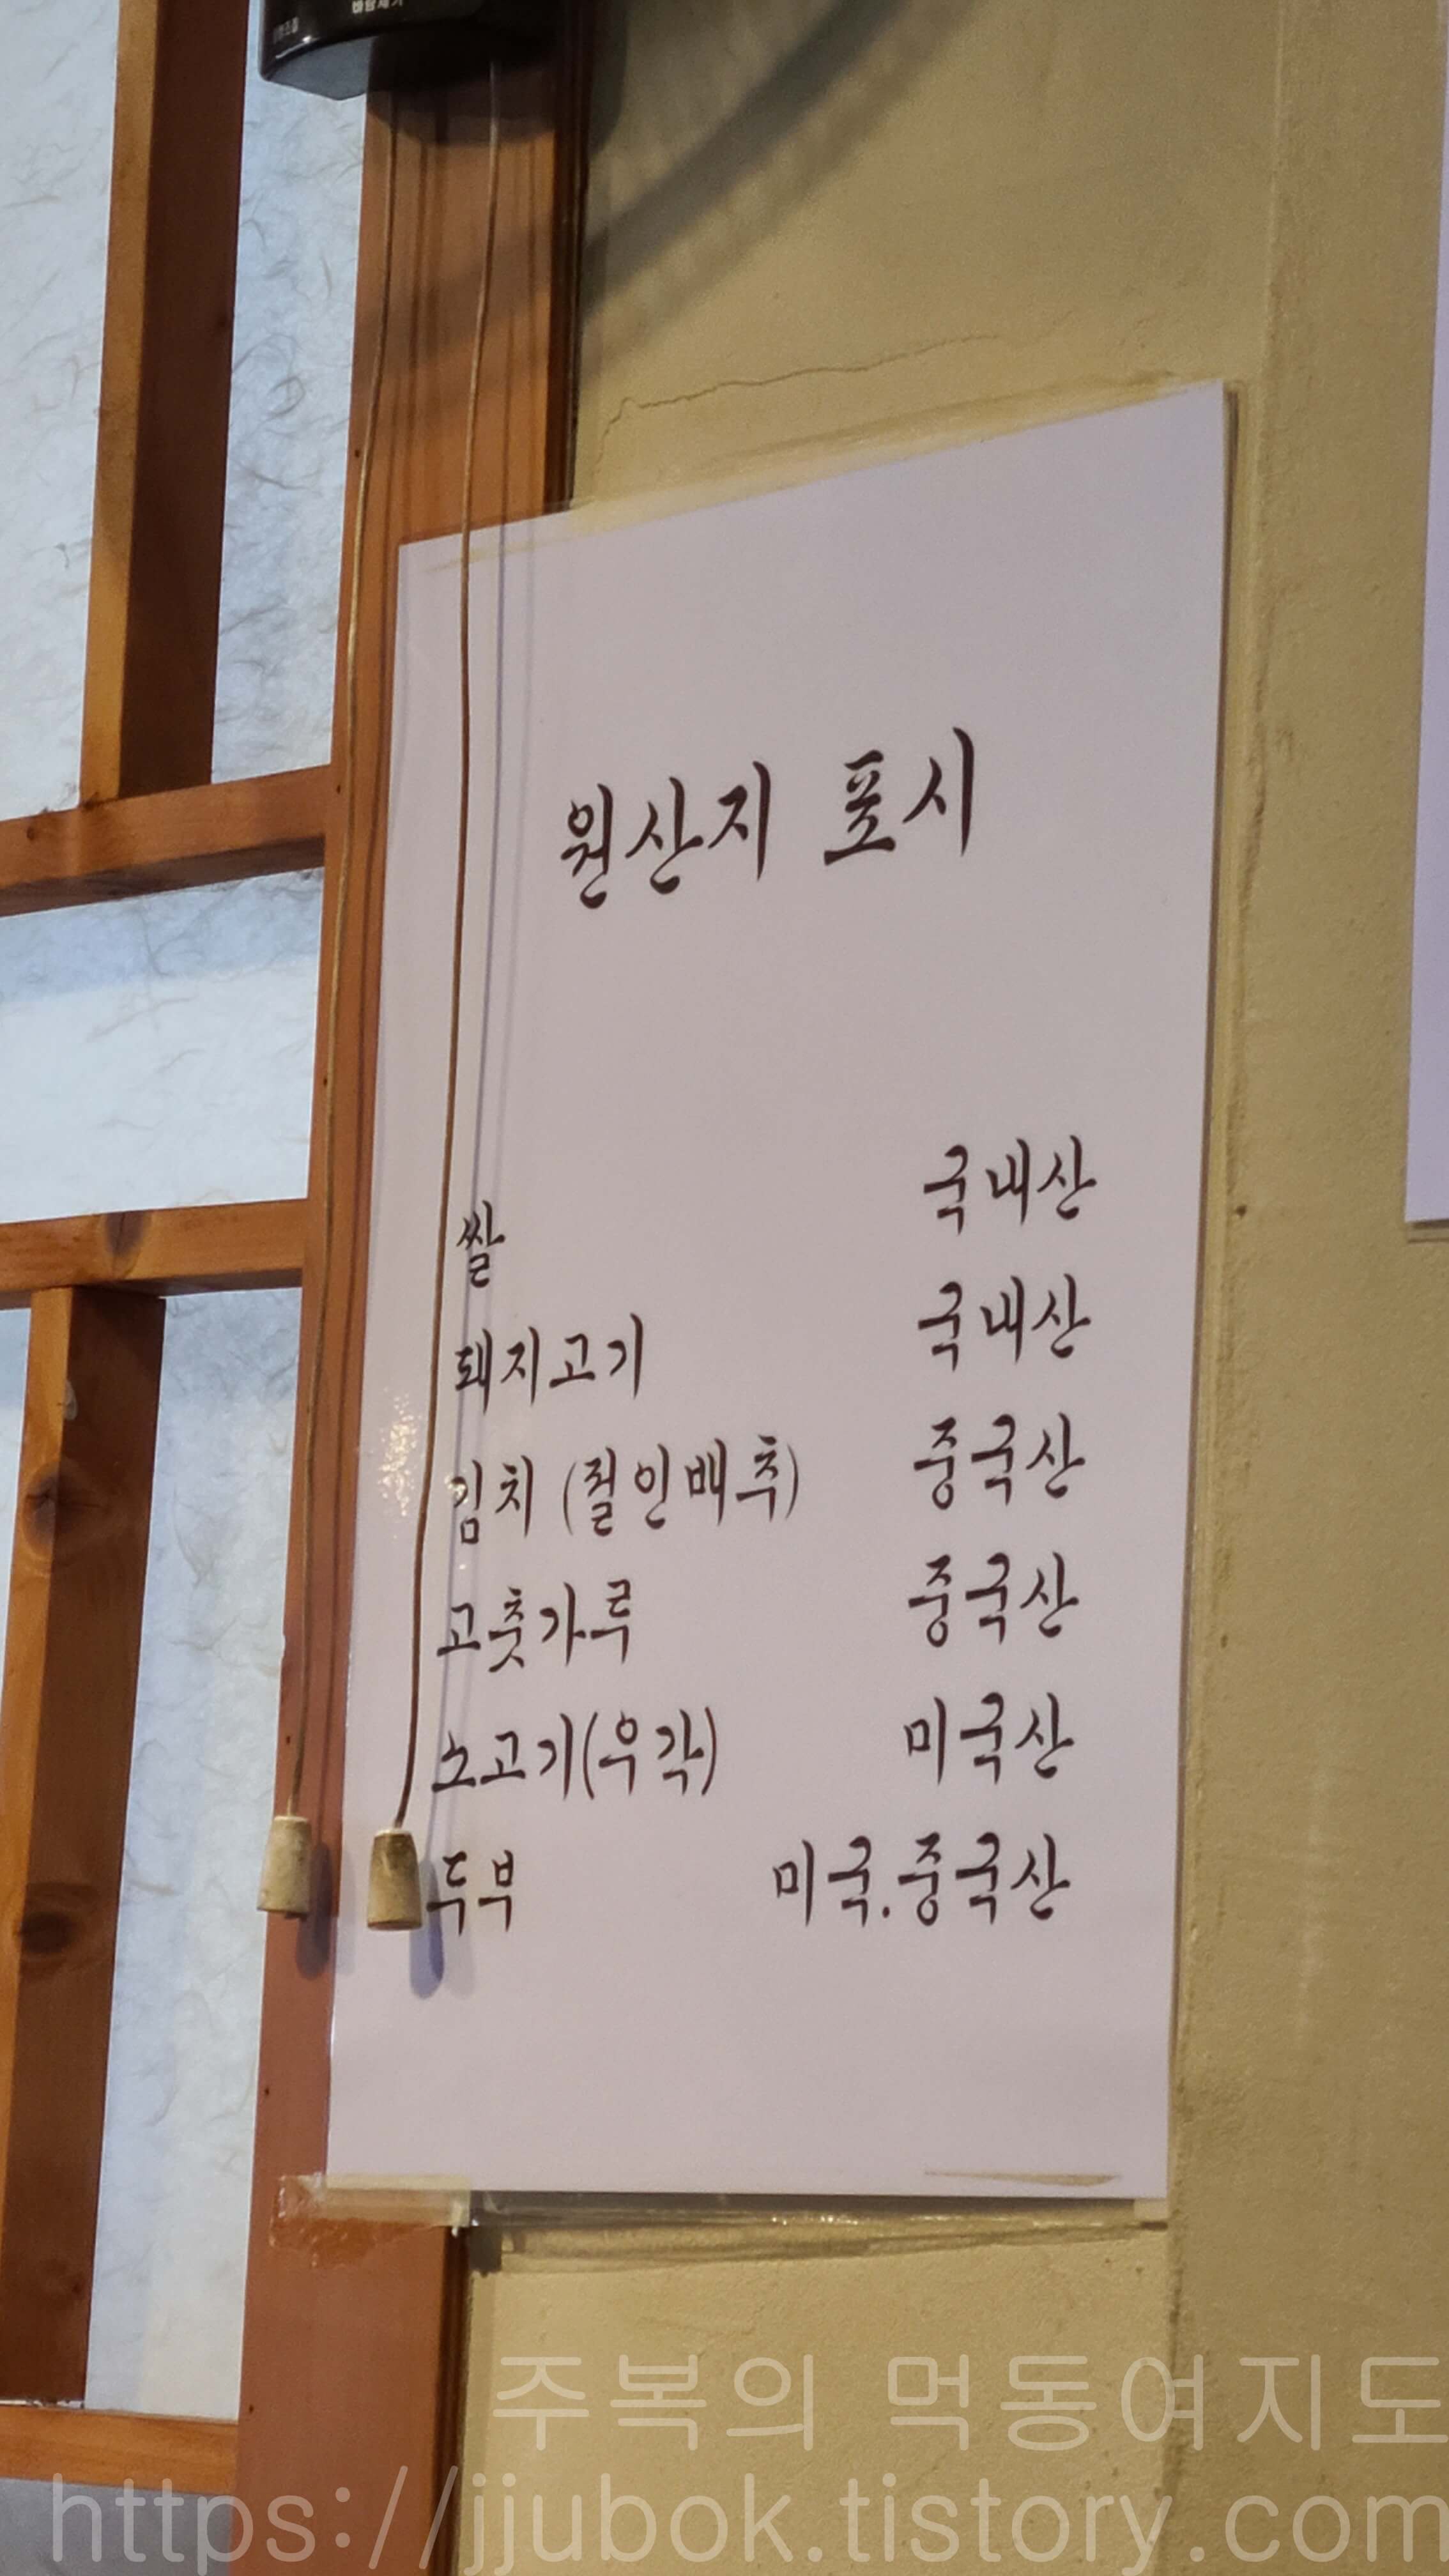 바람세기
원산지 표시
쌀 국내산
돼지고기 국내산
김치 (절인배추) 중국산
고춧가루 중국산
소고기(우각) 미국산
두부 미국.중국산
주복의 먹동여지도
https://jjubok.tistory.com